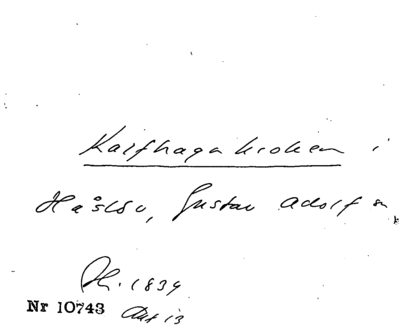 Kalfhagakroken i
Håslöv, Gustav Adolf sn
1839
Nr 10743